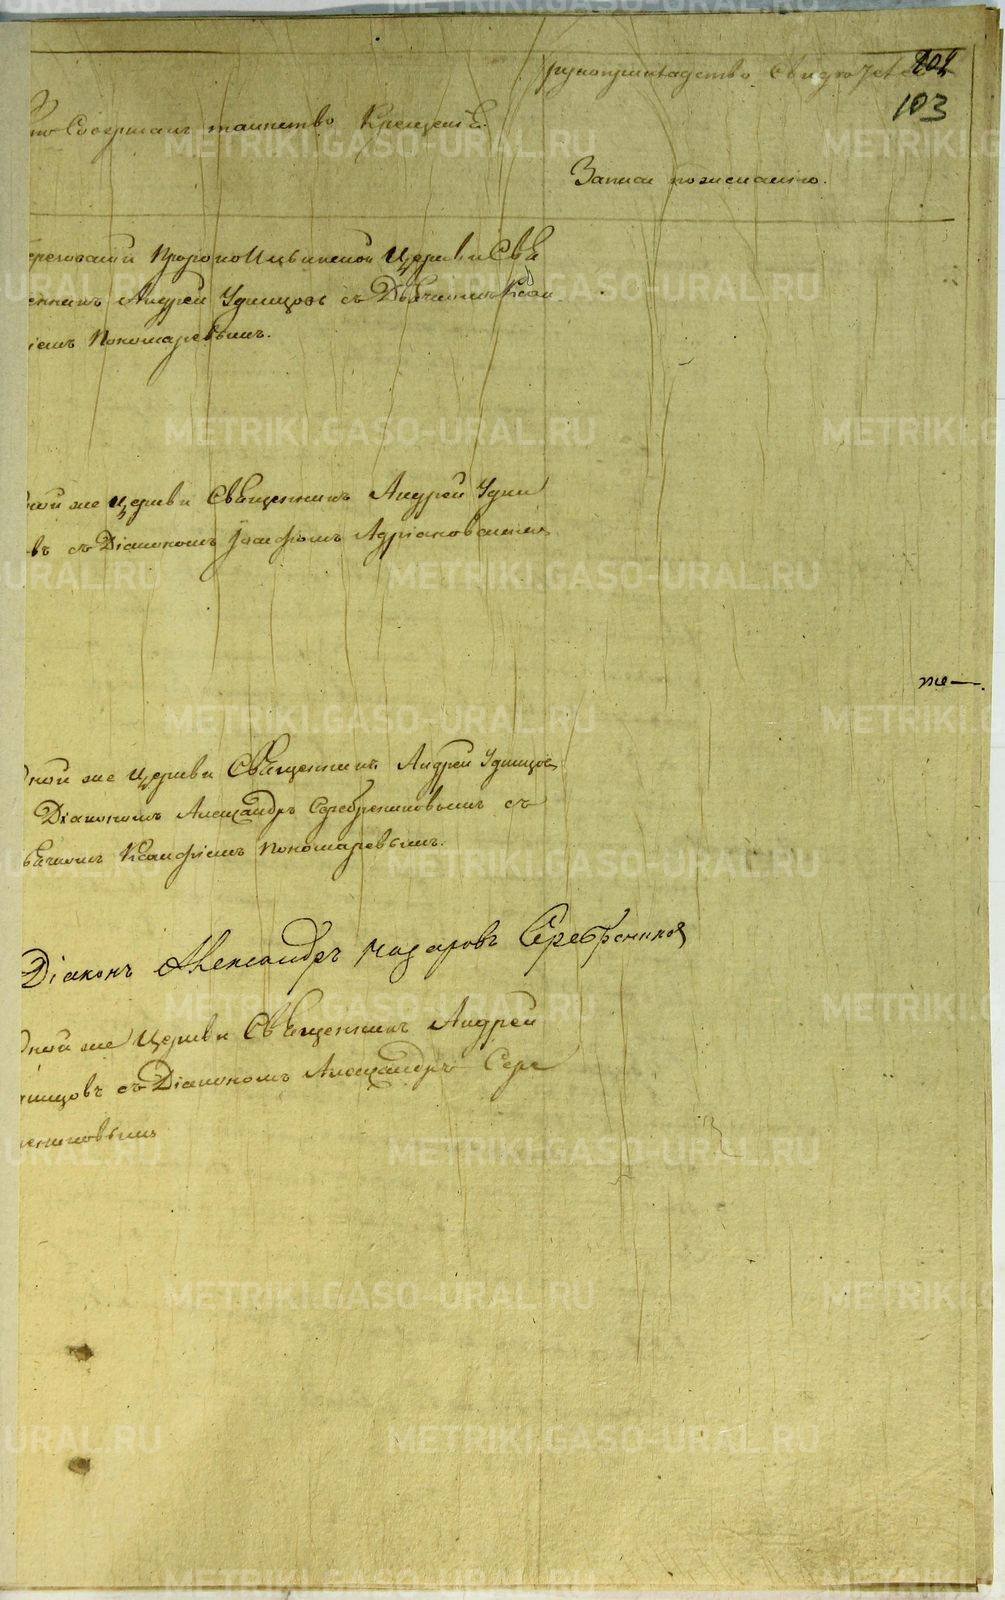 рукоприкладство Свидетел
202
103
Кто Совершалъ таинство Крещенія.
Записи пожеланію.
Пророкоильинской Церкви Свя
Андрей Удинцовъ съ Дьячкомъ Ксан
іемъ Пономаревымъ.
ной же Церкви Священникъ Андрей Удин
въ съ Діакономъ Іоасафомъ Адріановскимъ
же —
ной же Церкви Священникъ Андрей Удинцовъ
Діакономъ Александръ Серебрениковымъ съ
ьячкомъ Ксанфіемъ Пономаревымъ.
Діаконъ Александръ Назаровъ Серебрениковъ
ной же Церкви Священникъ Андрей
инцовъ съ Діакономъ Александръ Сере
ениковымъ
METRIKI.GASO-URAL.RU